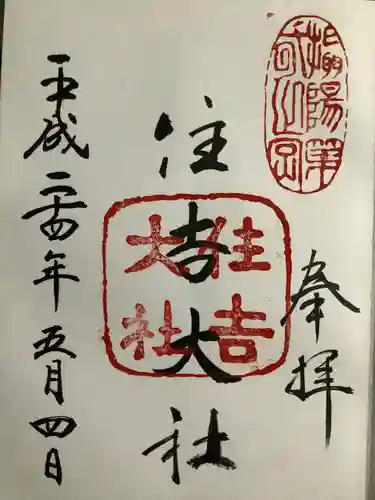 攝陽第
弌之宮
奉拝
住吉大社
住吉
大社
平成二十四年五月四日